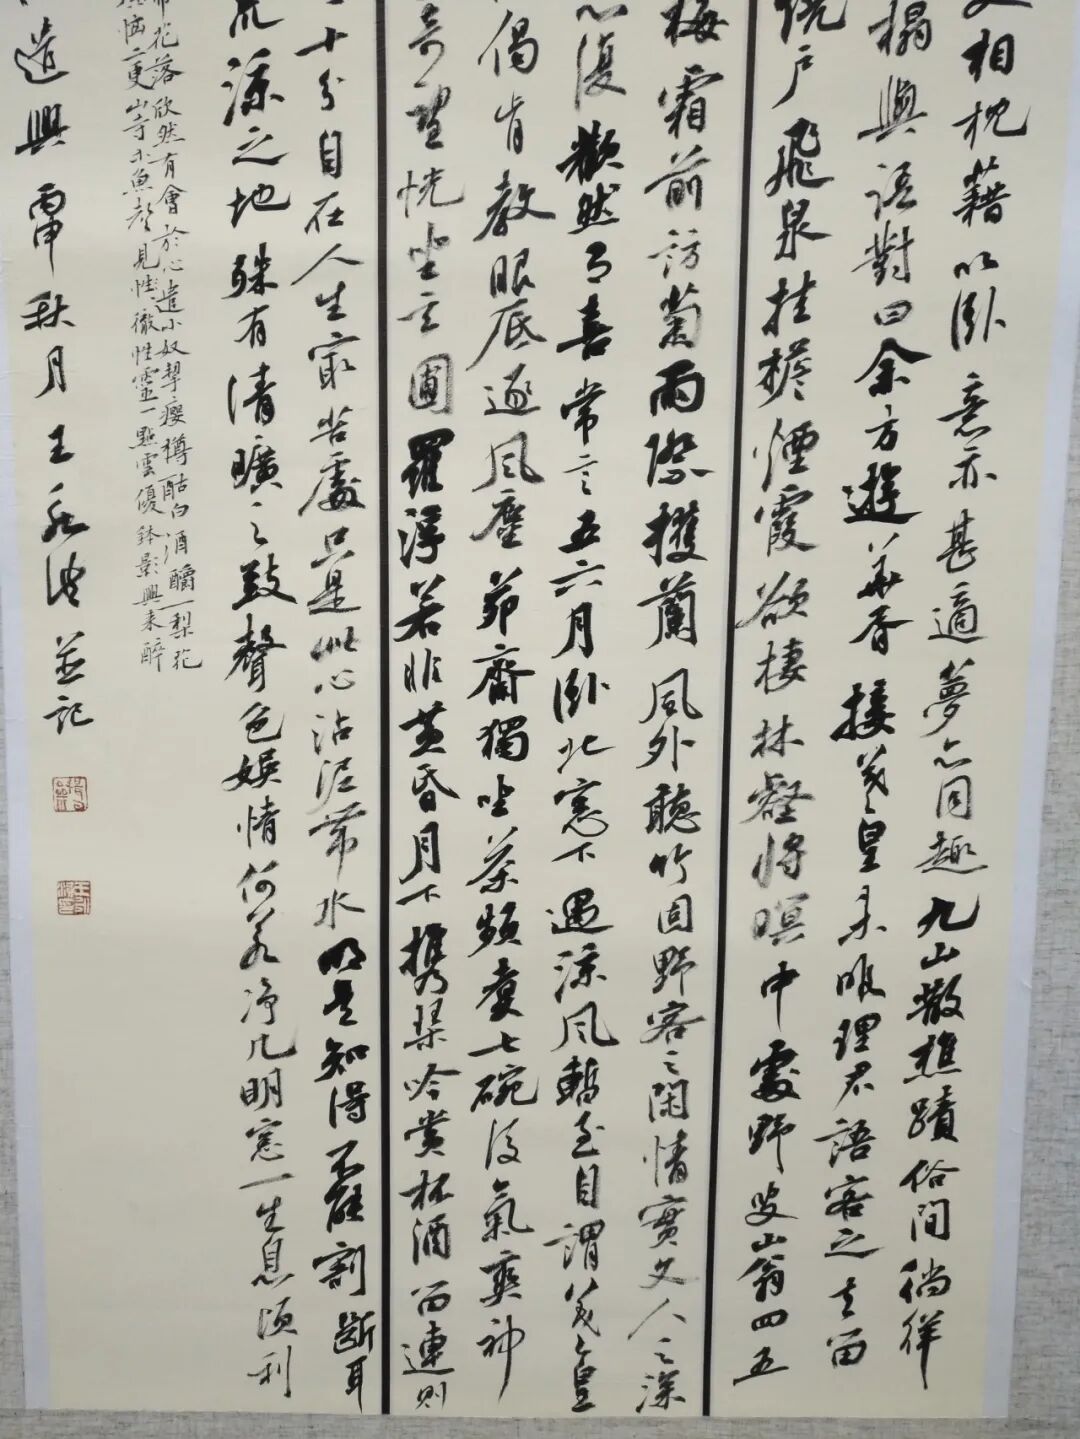 相枕藉以卧意亦甚適夢亦同趣九山散樵蹟俗間徜徉
榻與語對曰余方遊華胥接羲皇未暇理君語客之去留
繞户飛泉挂檐煙霞欲棲林壑將暝中處野叟山翁四五
梅霜前訪菊雨際護蘭風外聽竹固野客之閑情實文人之深
復歡然有喜常言五六月卧北窓下遇涼風暫至自謂羲皇
偈肯教眼底逐風塵茆齋獨坐茶頻煮七碗後氣爽神
奇望恍坐玄圃羅浮若非黄昏月下携琹吟賞杯酒留連則
十分自在人生最苦處只是此心沾泥帶水明是知得不能割斷耳
涼之地殊有清曠之致聲色娱情何若净几明窓一生息頃利
花落欣然有會於心遣小奴挈癭樽酤白酒釂一梨花
惱更山寺木魚聲見性徹性靈一點雲優鉢影興来醉
遣興丙申秋月王永 並記